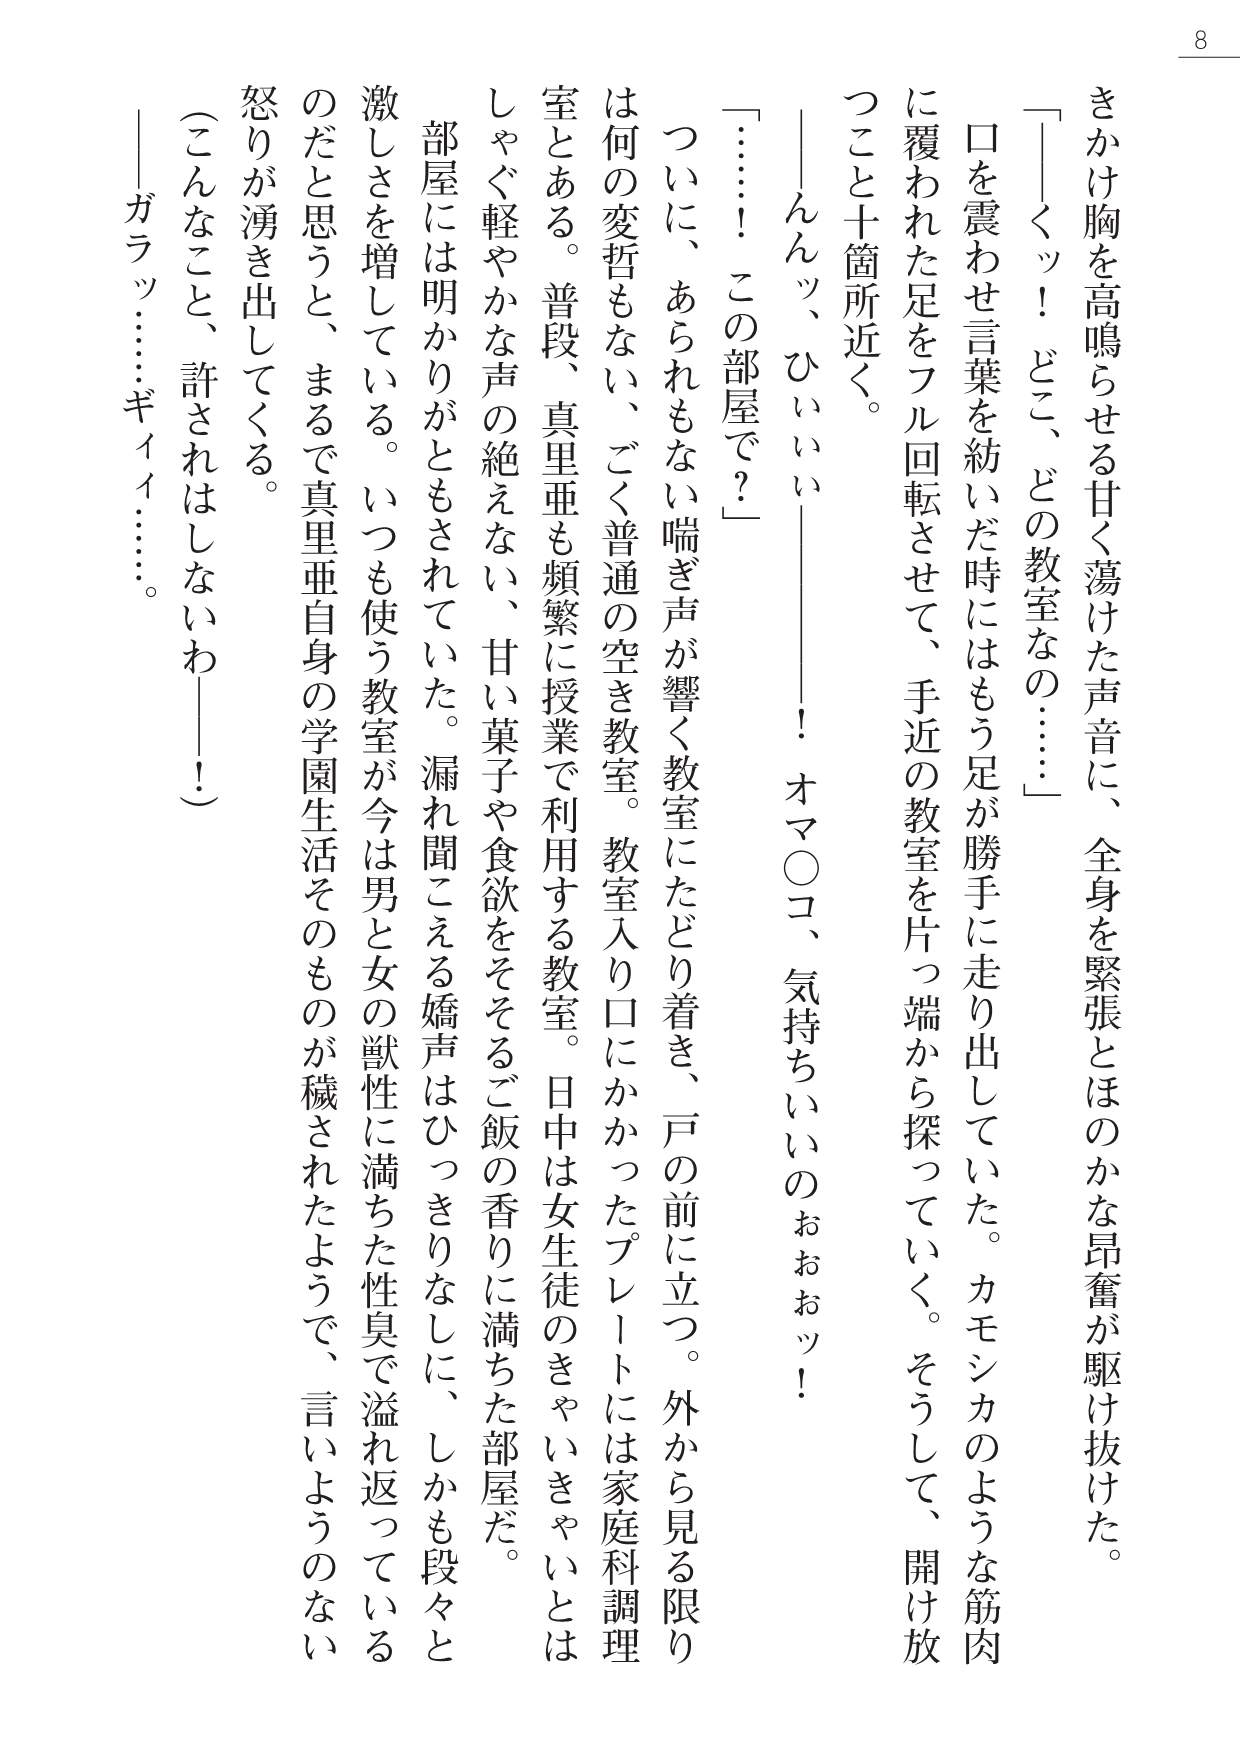 8
きかけ胸を高鳴らせる甘く蕩けた声音に、全身を緊張とほのかな昂奮が駆け抜けた。
「――くッ！　どこ、どの教室なの……」
口を震わせ言葉を紡いだ時にはもう足が勝手に走り出していた。カモシカのような筋肉
に覆われた足をフル回転させて、手近の教室を片っ端から探っていく。そうして、開け放
つこと十箇所近く。
――んんッ、ひぃぃぃ―――――！　オマ○コ、気持ちいいのぉぉぉッ！
「……！　この部屋で？」
ついに、あられもない喘ぎ声が響く教室にたどり着き、戸の前に立つ。外から見る限り
は何の変哲もない、ごく普通の空き教室。教室入り口にかかったプレートには家庭科調理
室とある。普段、真里亜も頻繁に授業で利用する教室。日中は女生徒のきゃいきゃいとは
しゃぐ軽やかな声の絶えない、甘い菓子や食欲をそそるご飯の香りに満ちた部屋だ。
部屋には明かりがともされていた。漏れ聞こえる嬌声はひっきりなしに、しかも段々と
激しさを増している。いつも使う教室が今は男と女の獣性に満ちた性臭で溢れ返っている
のだと思うと、まるで真里亜自身の学園生活そのものが穢されたようで、言いようのない
怒りが湧き出してくる。
（こんなこと、許されはしないわ――！）
――ガラッ……ギィィ……。